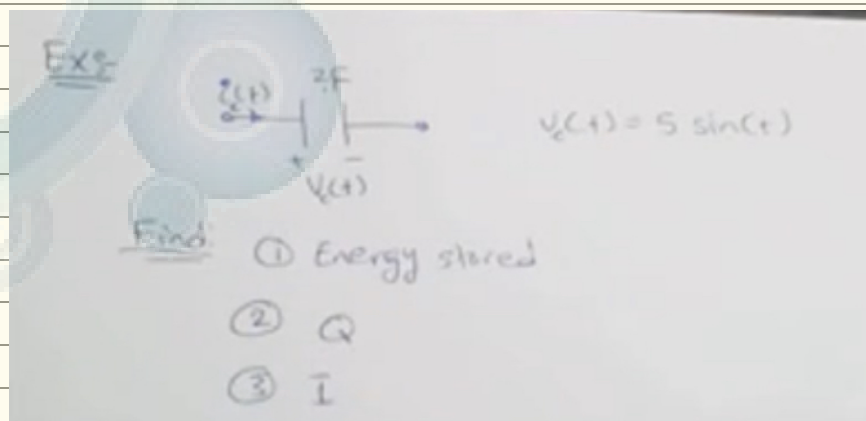 Ex:
i_c(t)
2F
+ -
V_c(t)
V_c(t) = 5 sin(t)
Find
① Energy stored
② Q
③ I